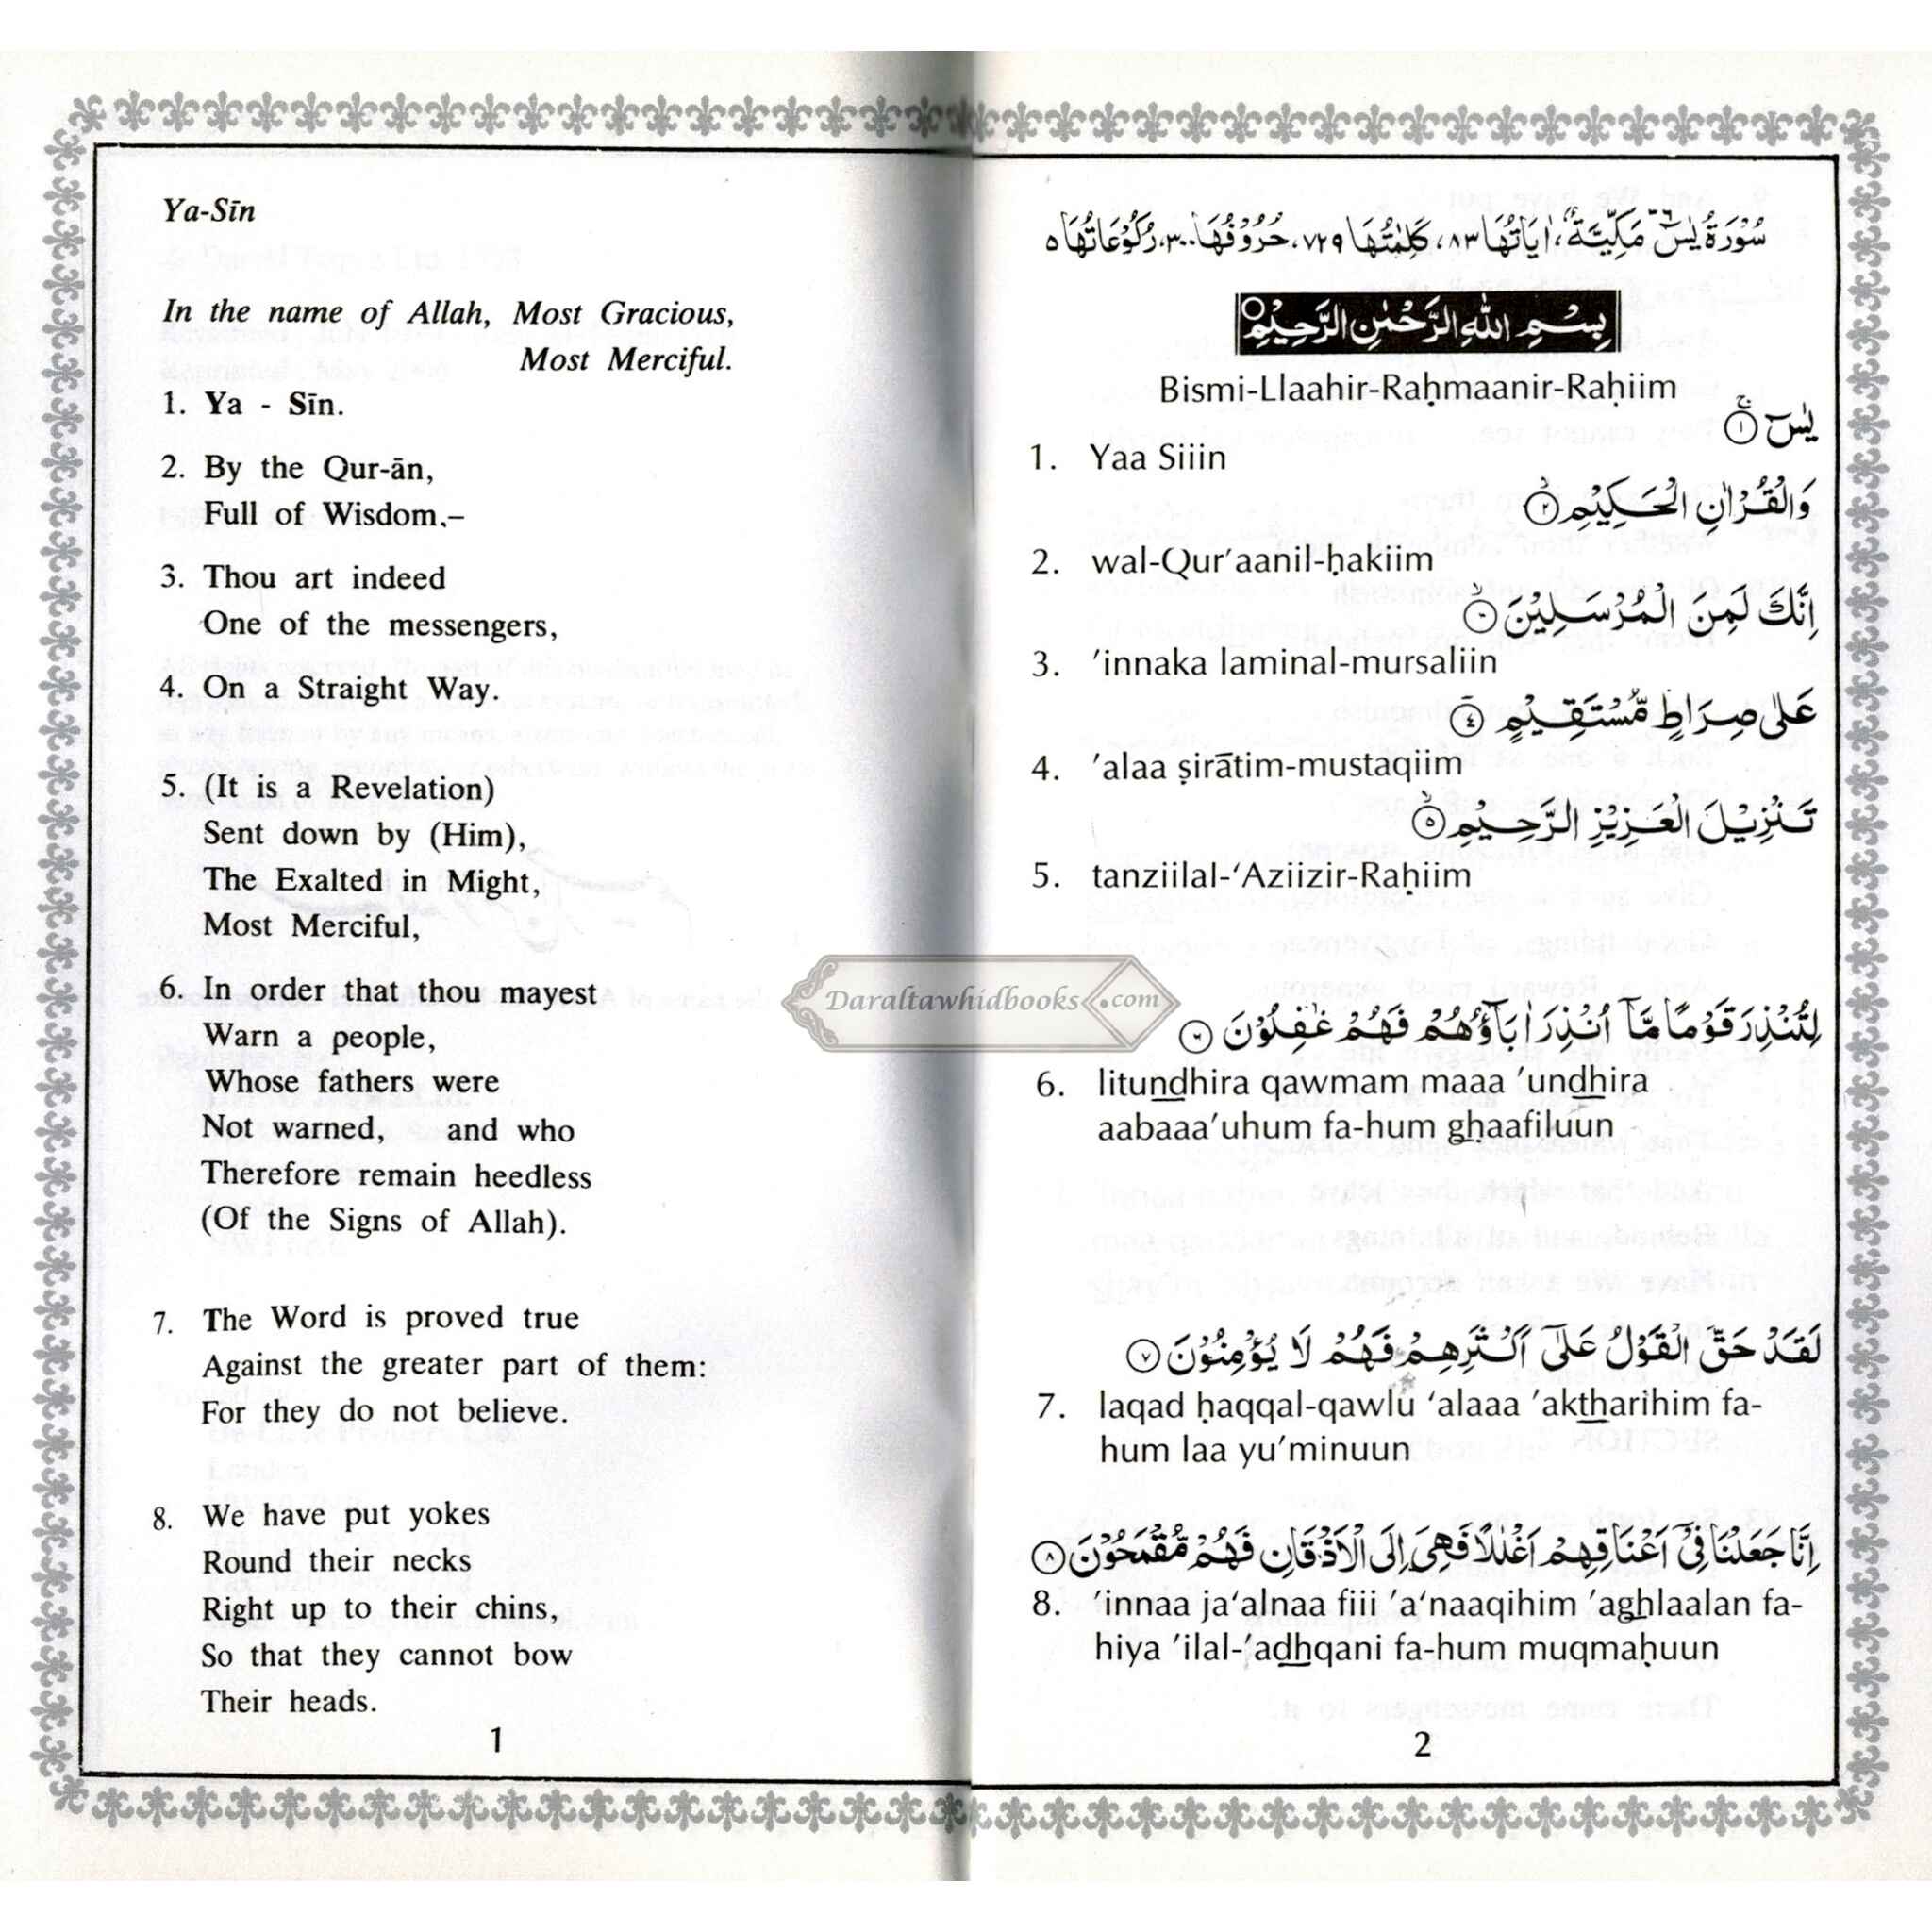 Ya-Sīn
In the name of Allah, Most Gracious,
Most Merciful.
1. Ya - Sīn.
2. By the Qur-ān,
Full of Wisdom,–
3. Thou art indeed
One of the messengers,
4. On a Straight Way.
5. (It is a Revelation)
Sent down by (Him),
The Exalted in Might,
Most Merciful,
6. In order that thou mayest
Warn a people,
Whose fathers were
Not warned, and who
Therefore remain heedless
(Of the Signs of Allah).
7. The Word is proved true
Against the greater part of them:
For they do not believe.
8. We have put yokes
Round their necks
Right up to their chins,
So that they cannot bow
Their heads.
1
Daraltawhidbooks.com
سُوْرَةُ يٰسٓ مَكِّيَّةٌ، اٰيَاتُهَا ٨٣، كَلِمٰتُهَا ٧٢٩، حُرُوْفُهَا ٣٠٠٠، رُكُوْعَاتُهَا ٥
بِسْمِ اللّٰهِ الرَّحْمٰنِ الرَّحِيْمِ
Bismi-Llaahir-Raḥmaanir-Raḥiim
يٰسٓ ۚ ①
1. Yaa Siiin
وَالْقُرْاٰنِ الْحَكِيْمِ ۙ ٢
2. wal-Qur’aanil-ḥakiim
اِنَّكَ لَمِنَ الْمُرْسَلِيْنَ ۙ
3. ’innaka laminal-mursaliin
عَلٰى صِرَاطٍ مُّسْتَقِيْمٍ ۭ ٤
4. ’alaa ṣirātim-mustaqiim
تَنْزِيْلَ الْعَزِيْزِ الرَّحِيْمِ ۙ ٥
5. tanziilal-‘Aziizir-Raḥiim
لِتُنْذِرَ قَوْمًا مَّآ اُنْذِرَ اٰبَآؤُهُمْ فَهُمْ غٰفِلُوْنَ ٦
6. litundhira qawmam maaa ’undhira
aabaaa’uhum fa-hum ghaafiluun
لَقَدْ حَقَّ الْقَوْلُ عَلٰٓى اَكْثَرِهِمْ فَهُمْ لَا يُؤْمِنُوْنَ ٧
7. laqad ḥaqqal-qawlu ‘alaaa ’aktharihim fa-
hum laa yu’minuun
اِنَّا جَعَلْنَا فِىْٓ اَعْنَاقِهِمْ اَغْلٰلًا فَهِىَ اِلَى الْاَذْقَانِ فَهُمْ مُّقْمَحُوْنَ ٨
8. ’innaa ja‘alnaa fiii ’a‘naaqihim ’aghlaalan fa-
hiya ’ilal-’adhqani fa-hum muqmaḥuun
2